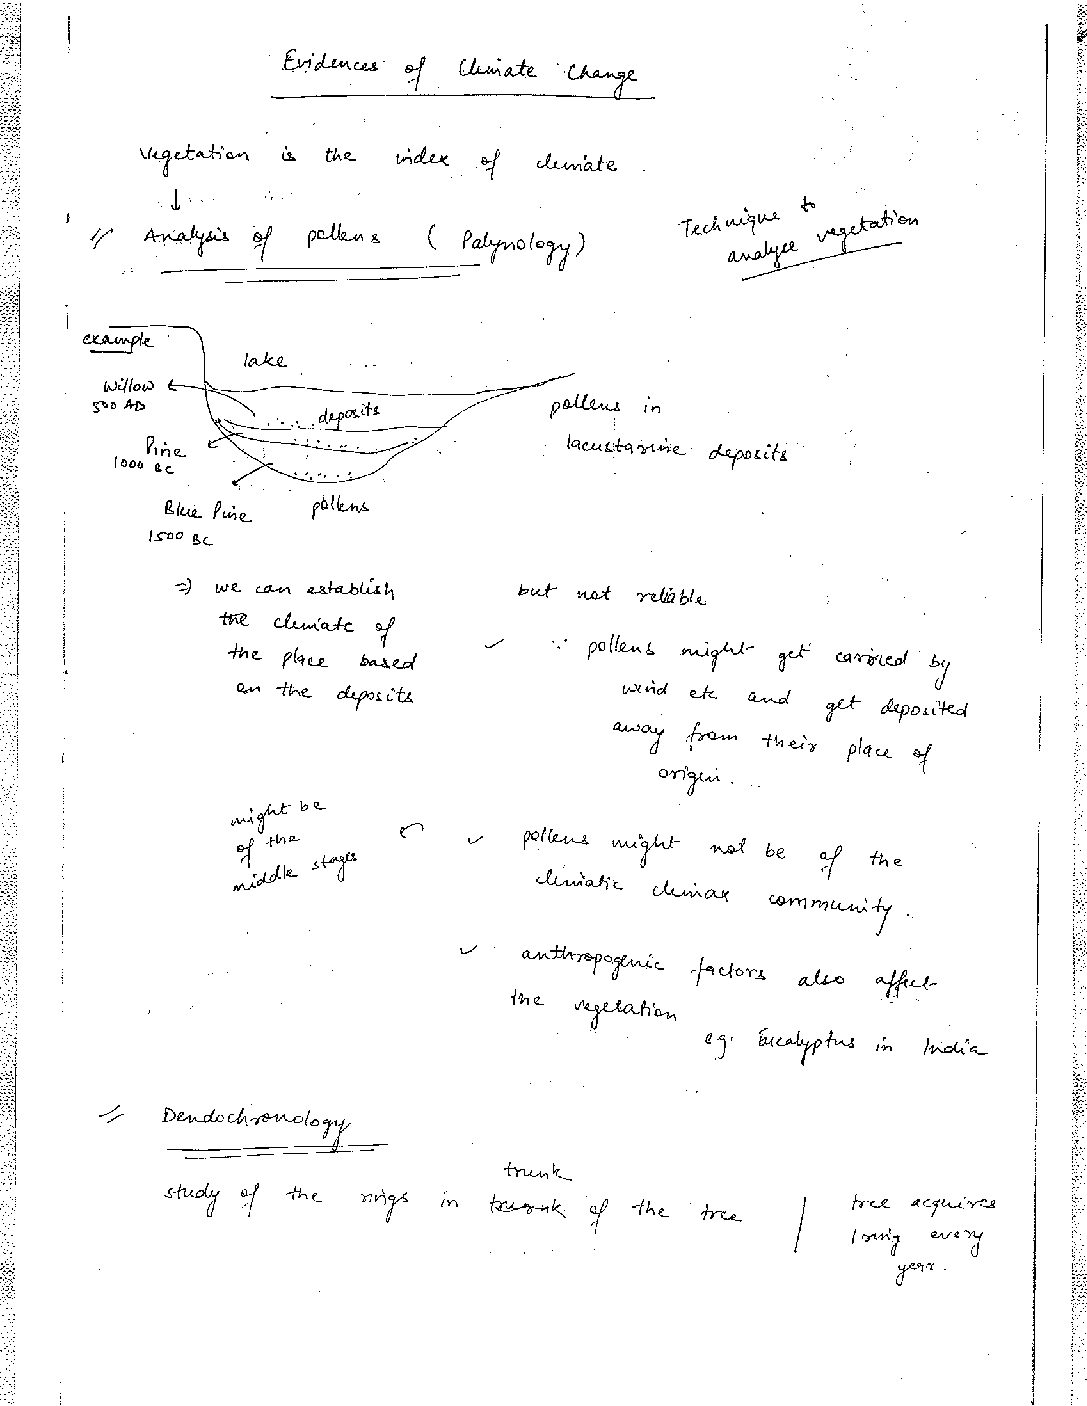 Evidences of Climate Change
Vegetation is the index of climate
↓
Analysis of pollens ( Palynology )
Technique to
analyse vegetation
example
lake
Willow
500 AD
deposits
Pine
1000 BC
Blue Pine
1500 BC
pollens
pollens in
lacustarine deposits
⇒ we can establish
the climate of
the place based
on the deposits
but not reliable
✓ ∵ pollens might get carried by
wind etc and get deposited
away from their place of
origin.
might be
of the
middle stages
✓ pollens might not be of the
climatic climax community.
✓ anthropogenic factors also affect
the vegetation
eg. Eucalyptus in India
Dendochronology
trunk
study of the rings in of the tree
tree acquires
1 ring every
year.